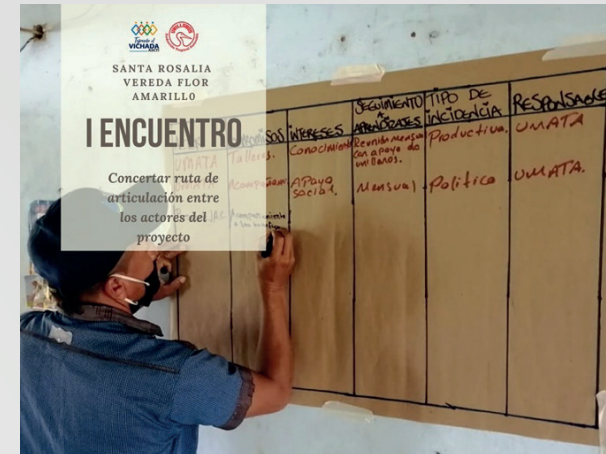 Tejiendo el
VICHADA
SANTA ROSALIA
VEREDA FLOR
AMARILL0
I ENCUENTRO
Concertar ruta de
articulación entre
los actores del
proyecto
SOS INTERESES SEGUIMIENTO A APRENDIZAJES TIPO DE INCIDENCIA RESPONSABLE
UMATA Talleres. Conocimiento Reunión mensual con apoyo de unillanos. Productiva. UMATA
UMATA Apoyo social. Mensual Político UMATA.
Acompañamiento